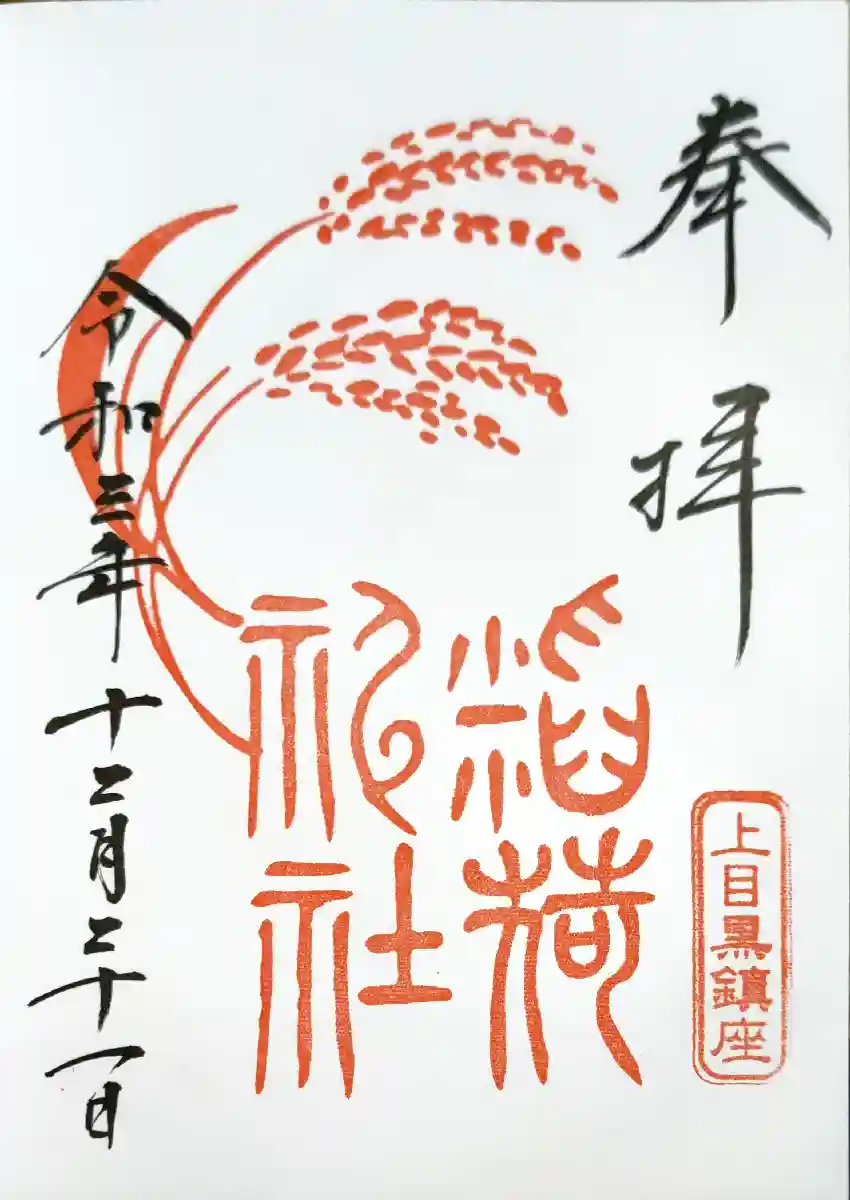 奉拝
上目黒鎮座
稲荷
神社
令和三年十二月二十一日